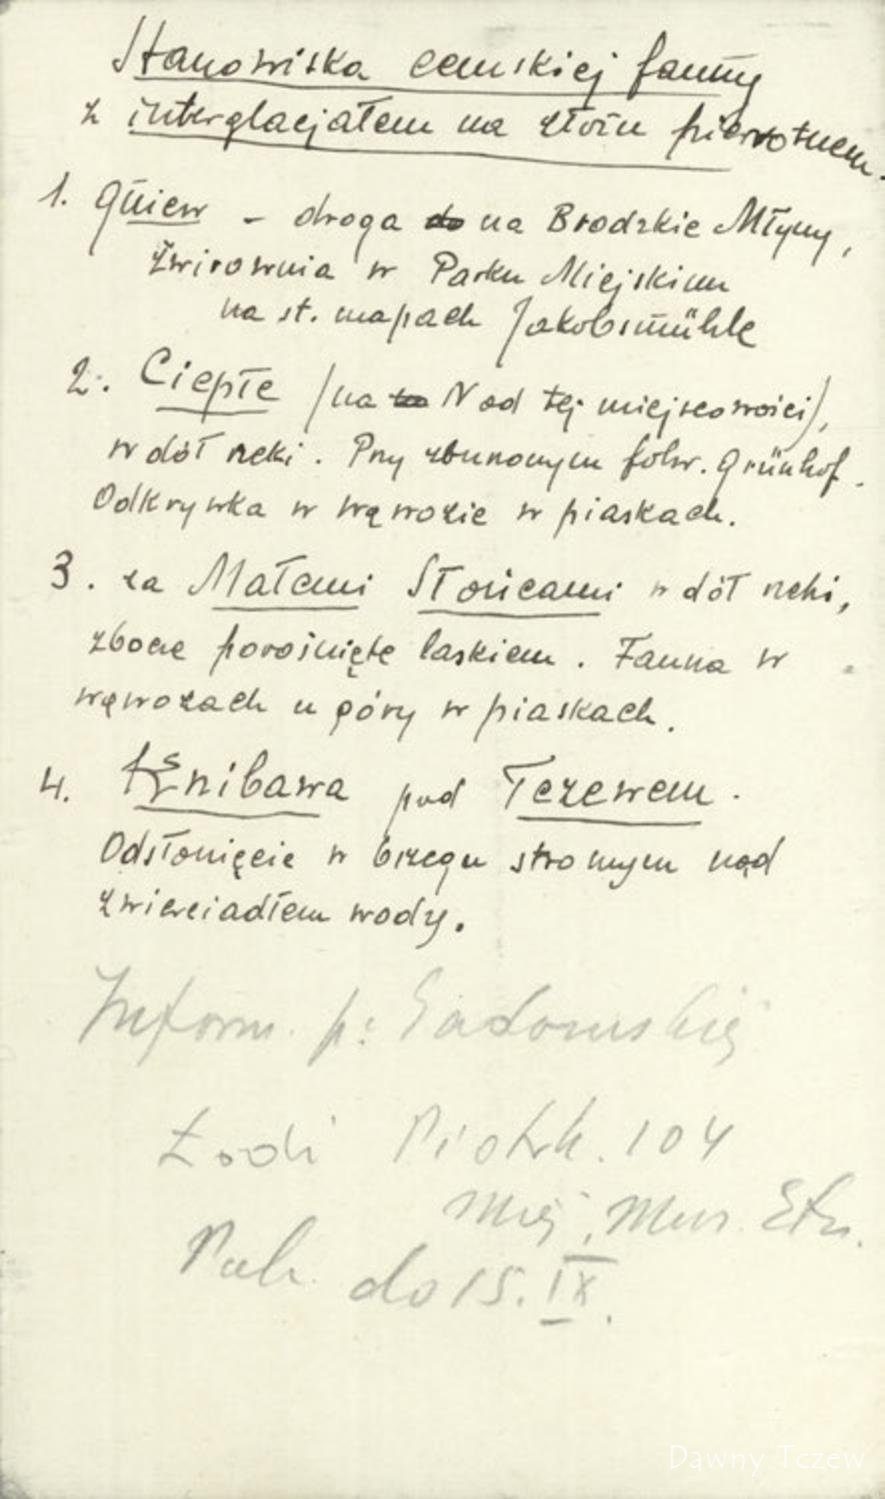 Stanowiska eemskiej fauny
z interglacjałem na złożu pierwotnem.
1. Gniew – droga do na Brodzkie Młyny,
Żwirownia w Parku Miejskim
na st. mapach Jakobsmühle
2. Ciepłe (na N od tej miejscowości),
w dół rzeki. Przy zburzonym folw. Grünhof.
Odkrywka w wąwozie w piaskach.
3. za Małemi Słońcami w dół rzeki,
zbocze porośnięte laskiem. Fauna w
wąwozach u góry w piaskach.
4. Knibawa pod Tczewem.
Odsłonięcie w brzegu stromym nad
zwierciadłem wody.
Inform. p:
Łodi Piotrk. 104
Miej. Muz. Etn.
do 15. IX.
Dawny Tczew